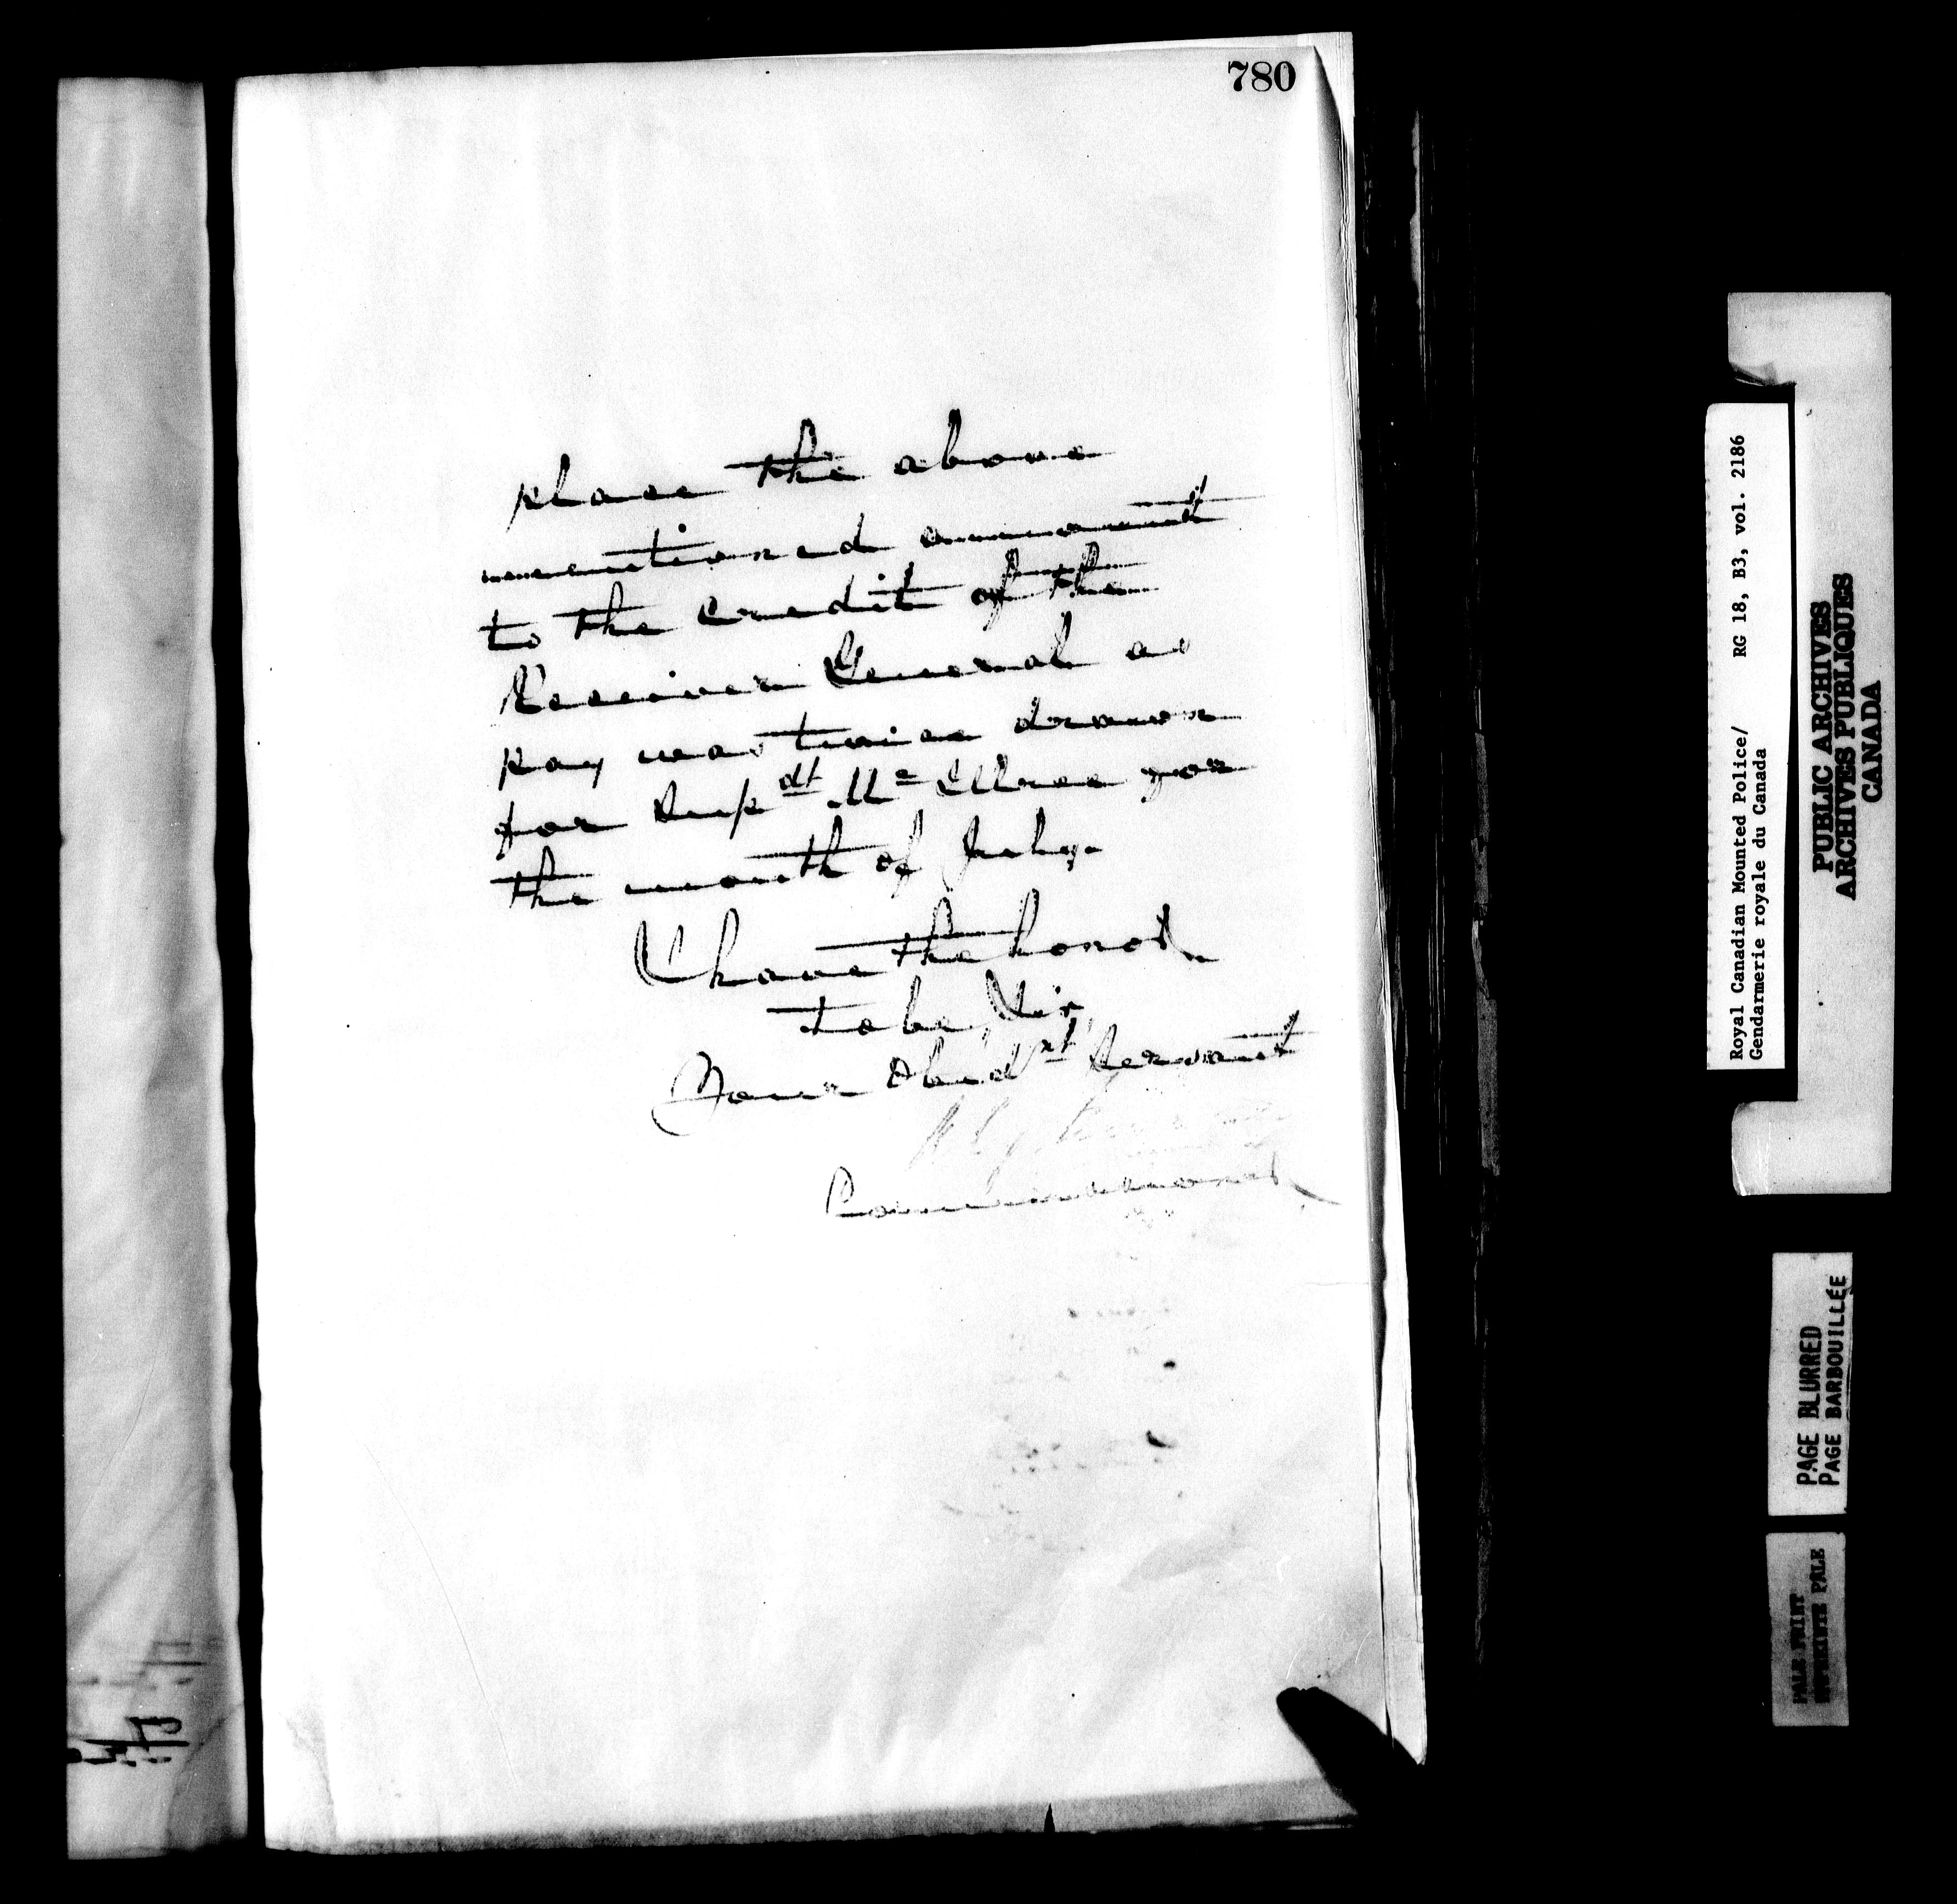 780
place the above
mentioned amount
to the Credit of the
Receiver General as
pay was twice drawn
for Supdt McIllree for
the month of July.
I have the honor
to be, Sir,
Your Obed't Servant
Commissioner
Royal Canadian Mounted Police/ RG 18, B3, vol. 2186
Gendarmerie royale du Canada
PUBLIC ARCHIVES
ARCHIVES PUBLIQUES
CANADA
PAGE BLURRED
PAGE BARBOUILLÉE
PALE PRINT
IMPRIMERIE PALE